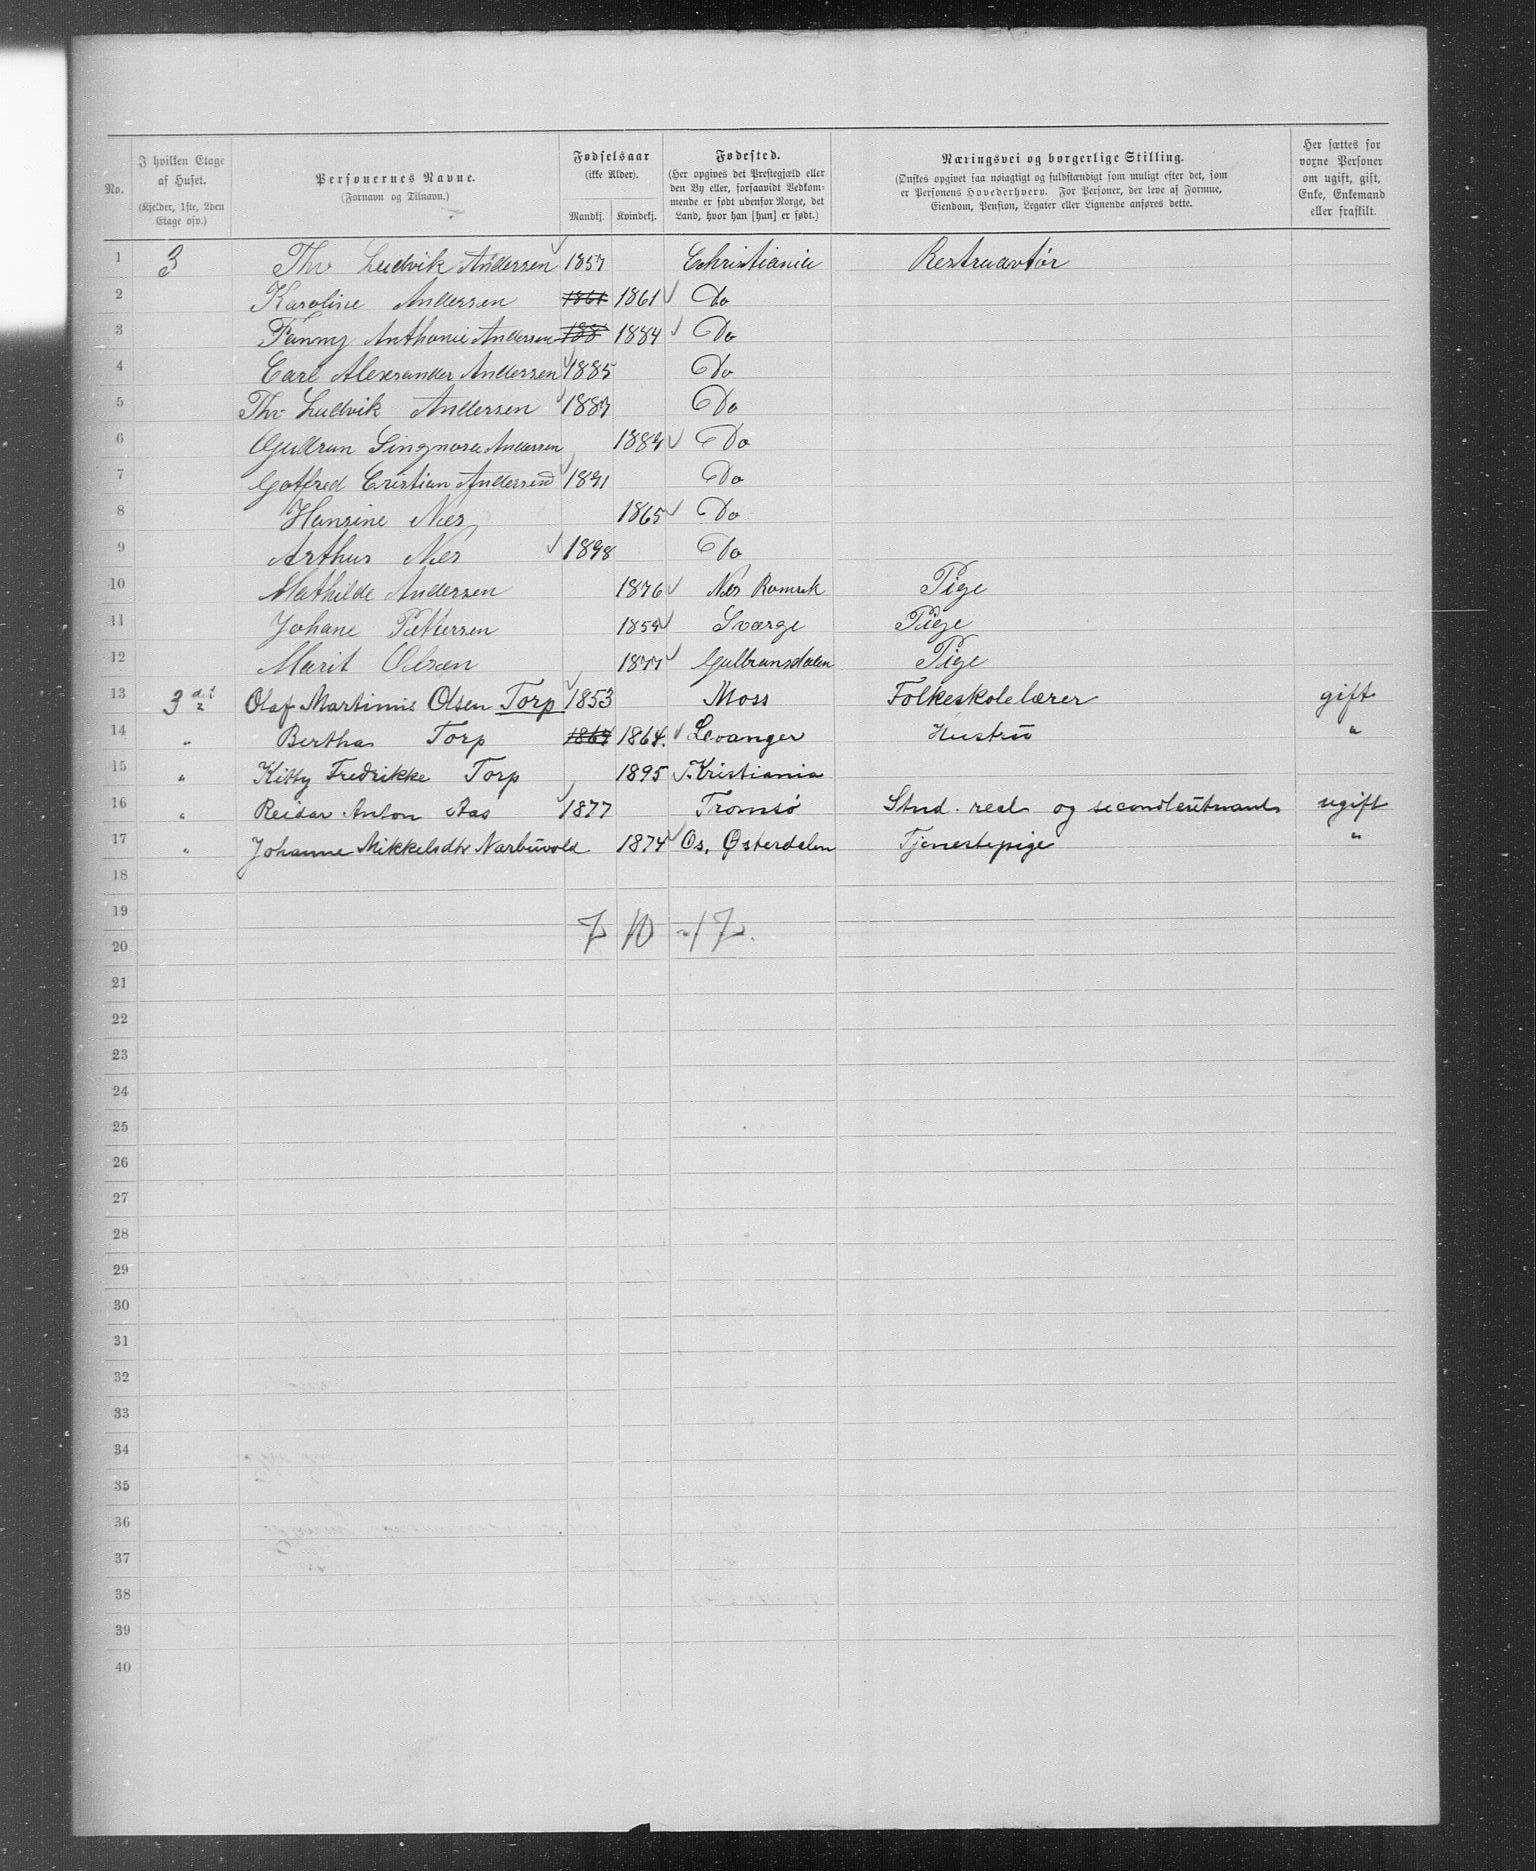 No.
I hvilken Etage af Huset.
(Kjelder, 1ste, 2den Etage osv.)
Personernes Navne.
(Fornavn og Tilnavn.)
Fødselsaar
(ikke Alder).
Mandkj. Kvindekj.
Fødested.
(Her opgives det Prestegjæld eller den By eller, forsaavidt Vedkommende er født udenfor Norge, det Land, hvor han [hun] er født.)
Næringsvei og borgerlige Stilling.
(Ønskes opgivet saa nøiagtigt og fuldstændigt som muligt efter det, som er Personens Hovederhverv. For Personer, der leve af Formue, Eiendom, Pension, Legater eller Lignende anføres dette.
Her sættes for voxne Personer om ugift, gift, Enke, Enkemand eller fraskilt.
1 3 Thv Ludvik Andersen 1857 Christiania Restruavtør
2 Karoline Andersen 1861 1861 Do
3 Fanny Anthonie Andersen 188 1884 Do
4 Carl Alexsander Andersen 1885 Do
5 Thv Ludvik Andersen 1887 Do
6 Gudrun Singnora Andersen 1889 Do
7 Gotfred Cristian Andersen 1891 Do
8 Hansine Næs 1865 Do
9 Arthur Næs 1898 Do
10 Mathilde Andersen 1876 Næs Romsrk Pige
11 Johane Pettersen 1859 Sværge Piige
12 Marit Olsen 1877 Gulbransdalen Pige
13 3 Olaf Martinius Olsen Torp 1853 Moss Folkeskolelærer gift
14 " Bertha Torp 1864 1864. Levanger Hustru "
15 " Kitty Fredrikke Torp 1895 Kristiania
16 " Reidar Anton Aas 1877 Tromsø Stud. real og secondleutnant ugift
17 " Johanne Mikkelsdtr Narbuvold 1874 Os, Østerdalen Tjenestepige "
18
19
7 10 - 17.
20
21
22
23
24
25
26
27
28
29
30
31
32
33
34
35
36
37
38
39
40